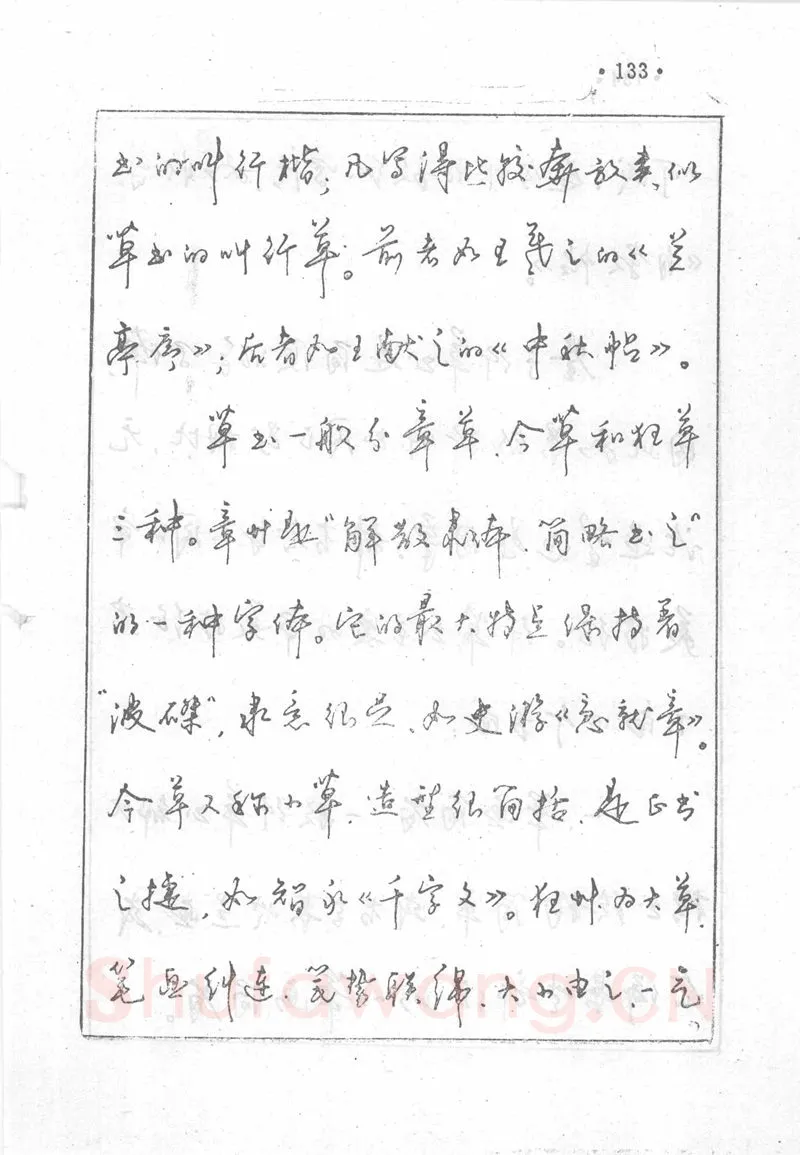 ·133·
书的叫行楷;凡写得比较奔放类似
草书的叫行草。前者如王羲之的《兰
亭序》;后者如王献之的《中秋帖》。
草书一般分章草、今草和狂草
三种。章艸是"解散隶体、简略书之"
的一种字体。它的最大特点保持着
"波磔",隶意很足、如史游《急就章》。
今草又称小草、造型很简括、是正书
之捷,如智永《千字文》。狂艸为大草、
笔画纠连、笔势联绵、大小由之、一气
Shufawang.CN